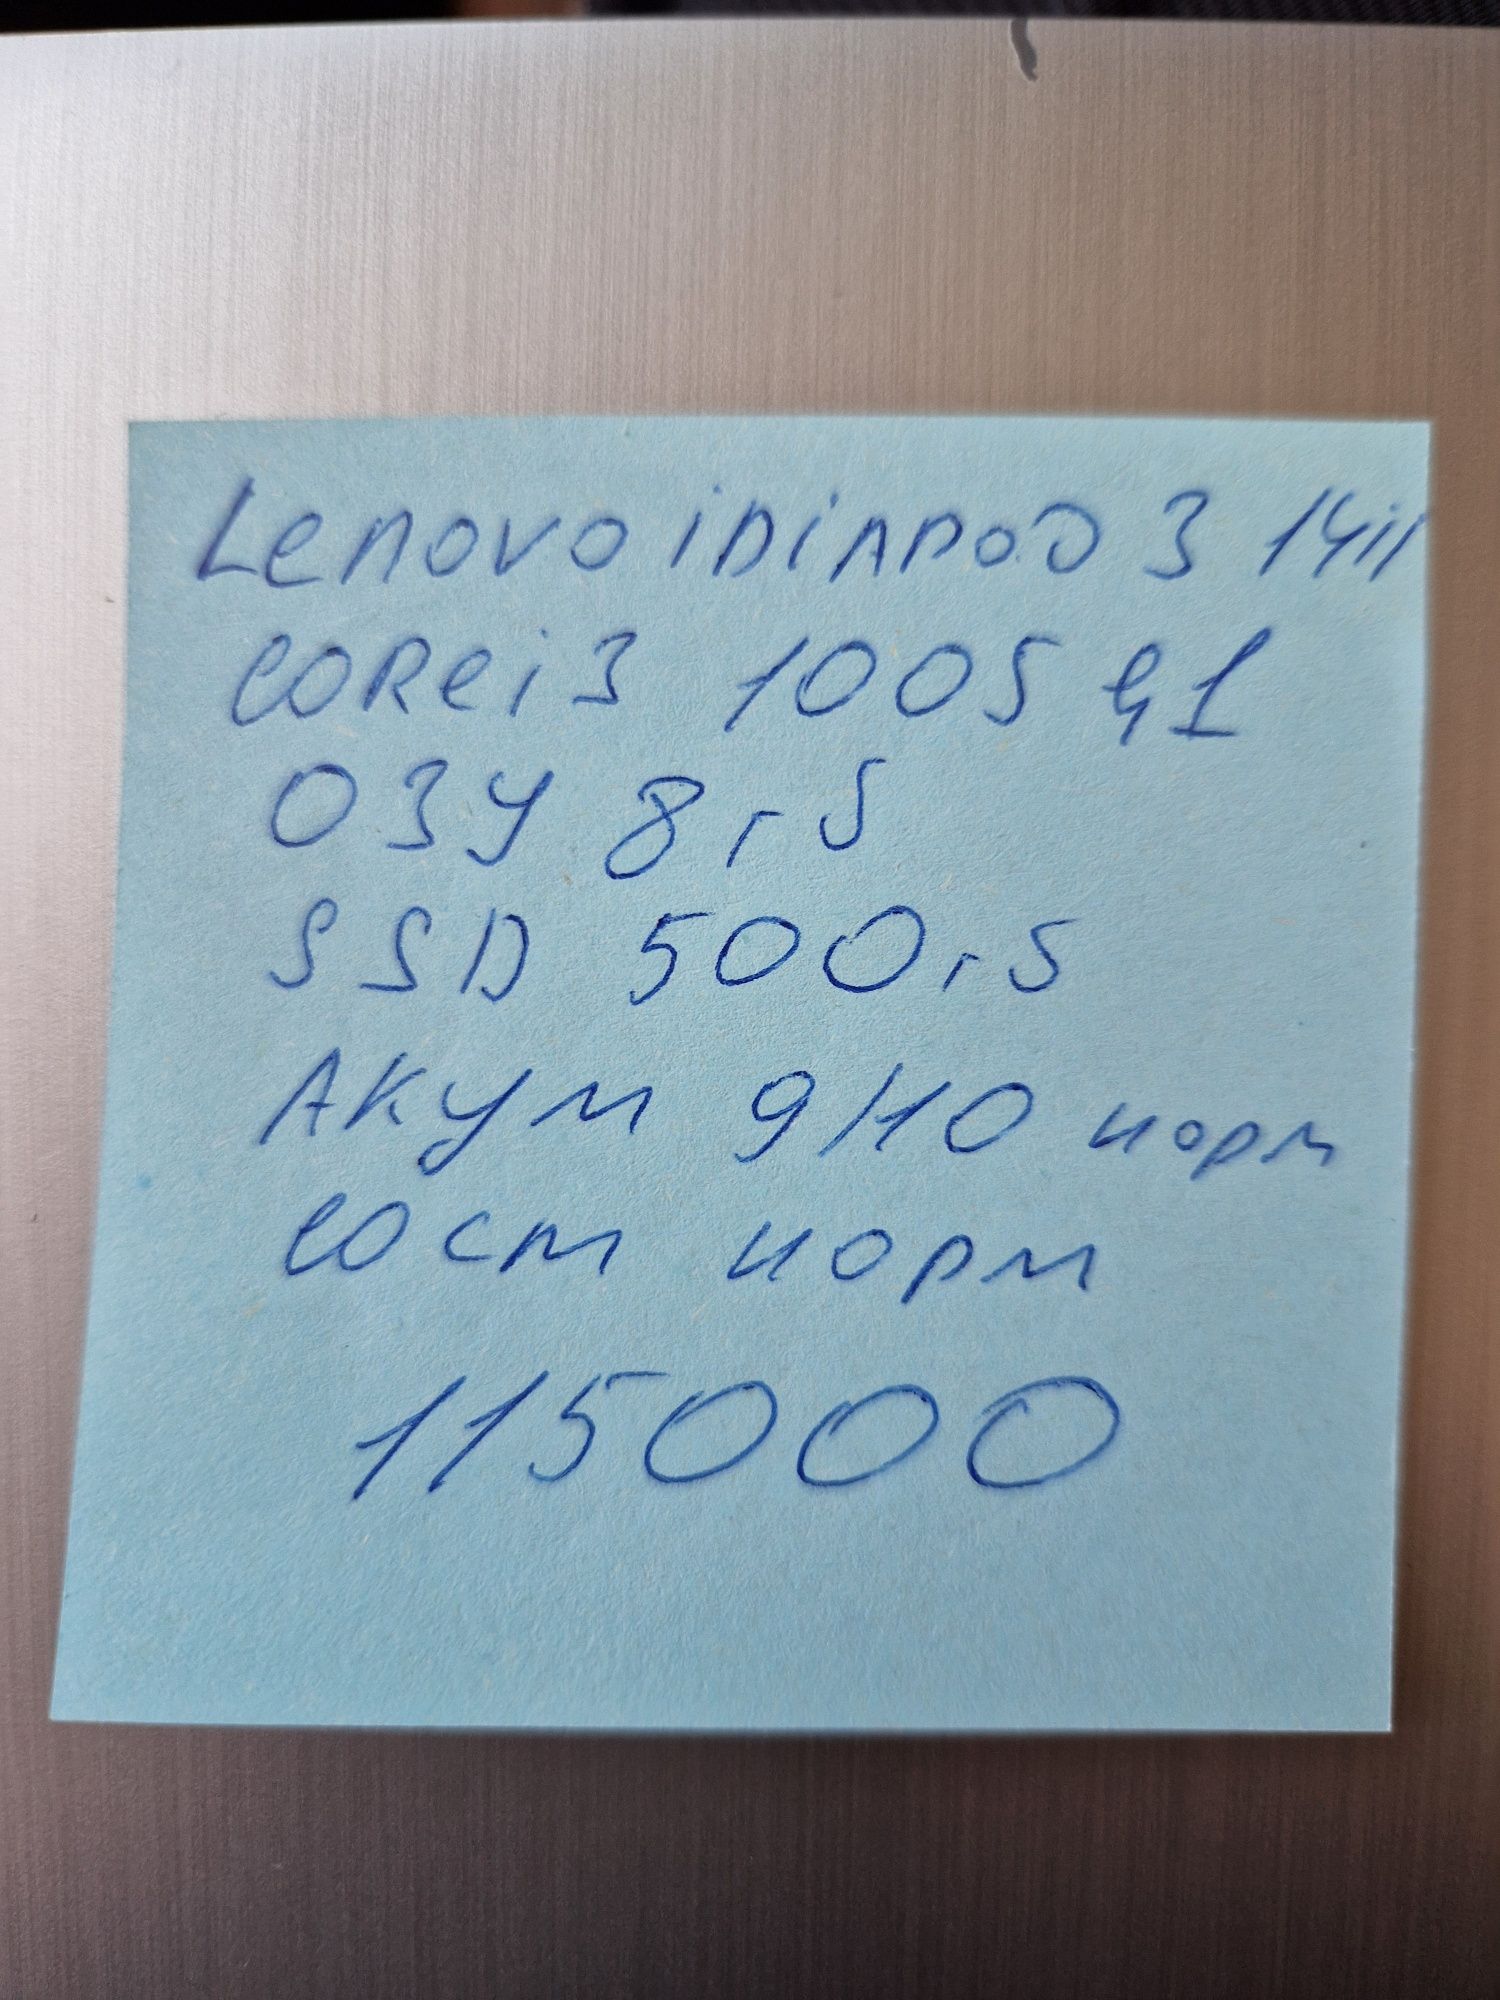 Lenovo iDiApoD 3 14iil
CORei3 1005 G1
ОЗУ 8 гб
SSD 500 гб
Акум 9/10 норм
Сост норм
115000